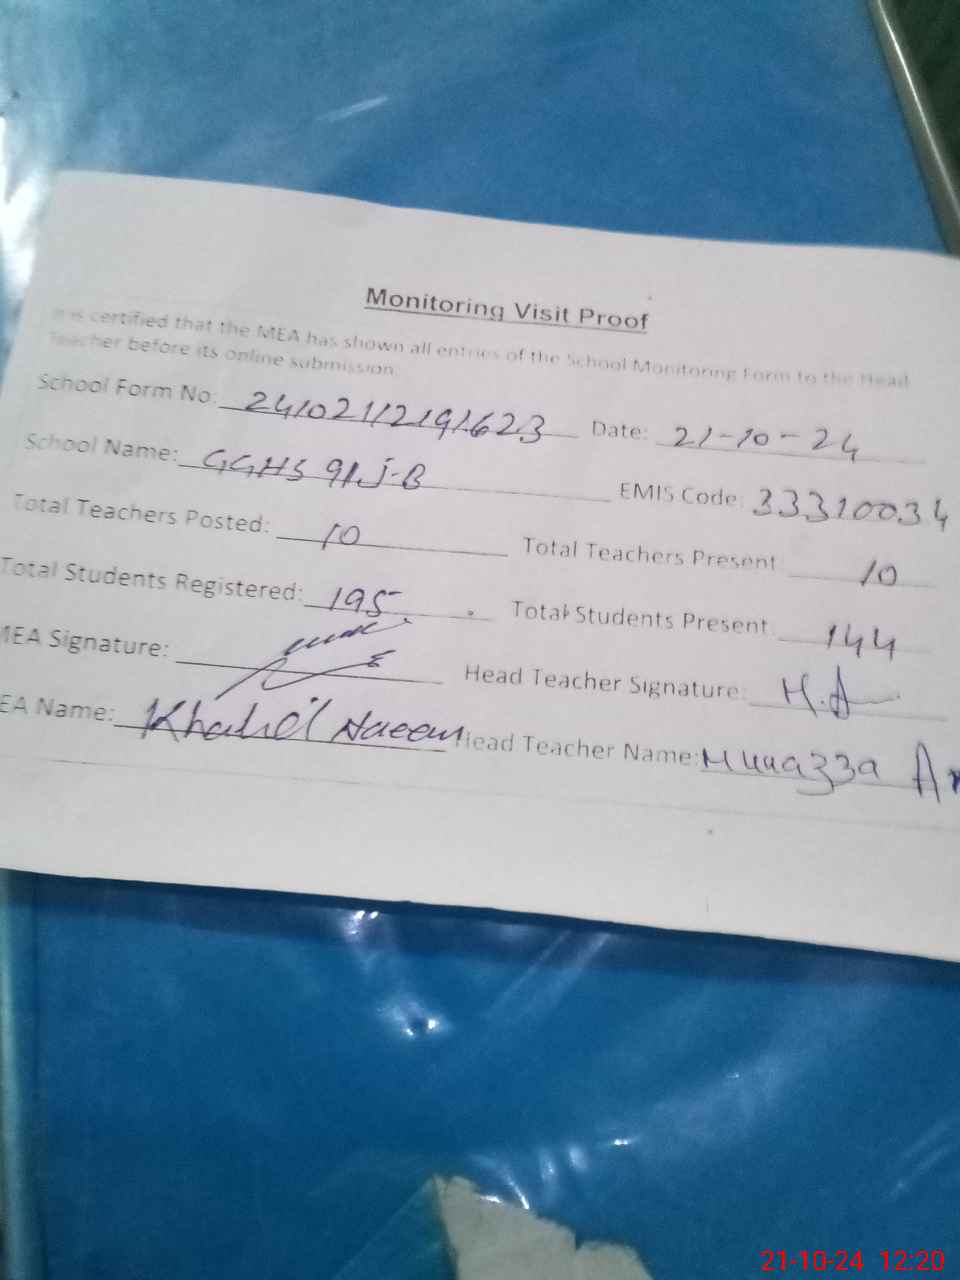 Monitoring Visit Proof
It is certified that the MEA has shown all entries of the School Monitoring Form to the Head
Teacher before its online submission.
School Form No: 24102112191623 Date: 21-10-24
School Name: GGHS 91 J-B EMIS Code: 33310034
Total Teachers Posted: 10 Total Teachers Present 10
Total Students Registered: 195 Total Students Present 144
MEA Signature: Head Teacher Signature: H.A
EA Name: Khalid Naeem Head Teacher Name: Muuazza
21-10-24 12:20